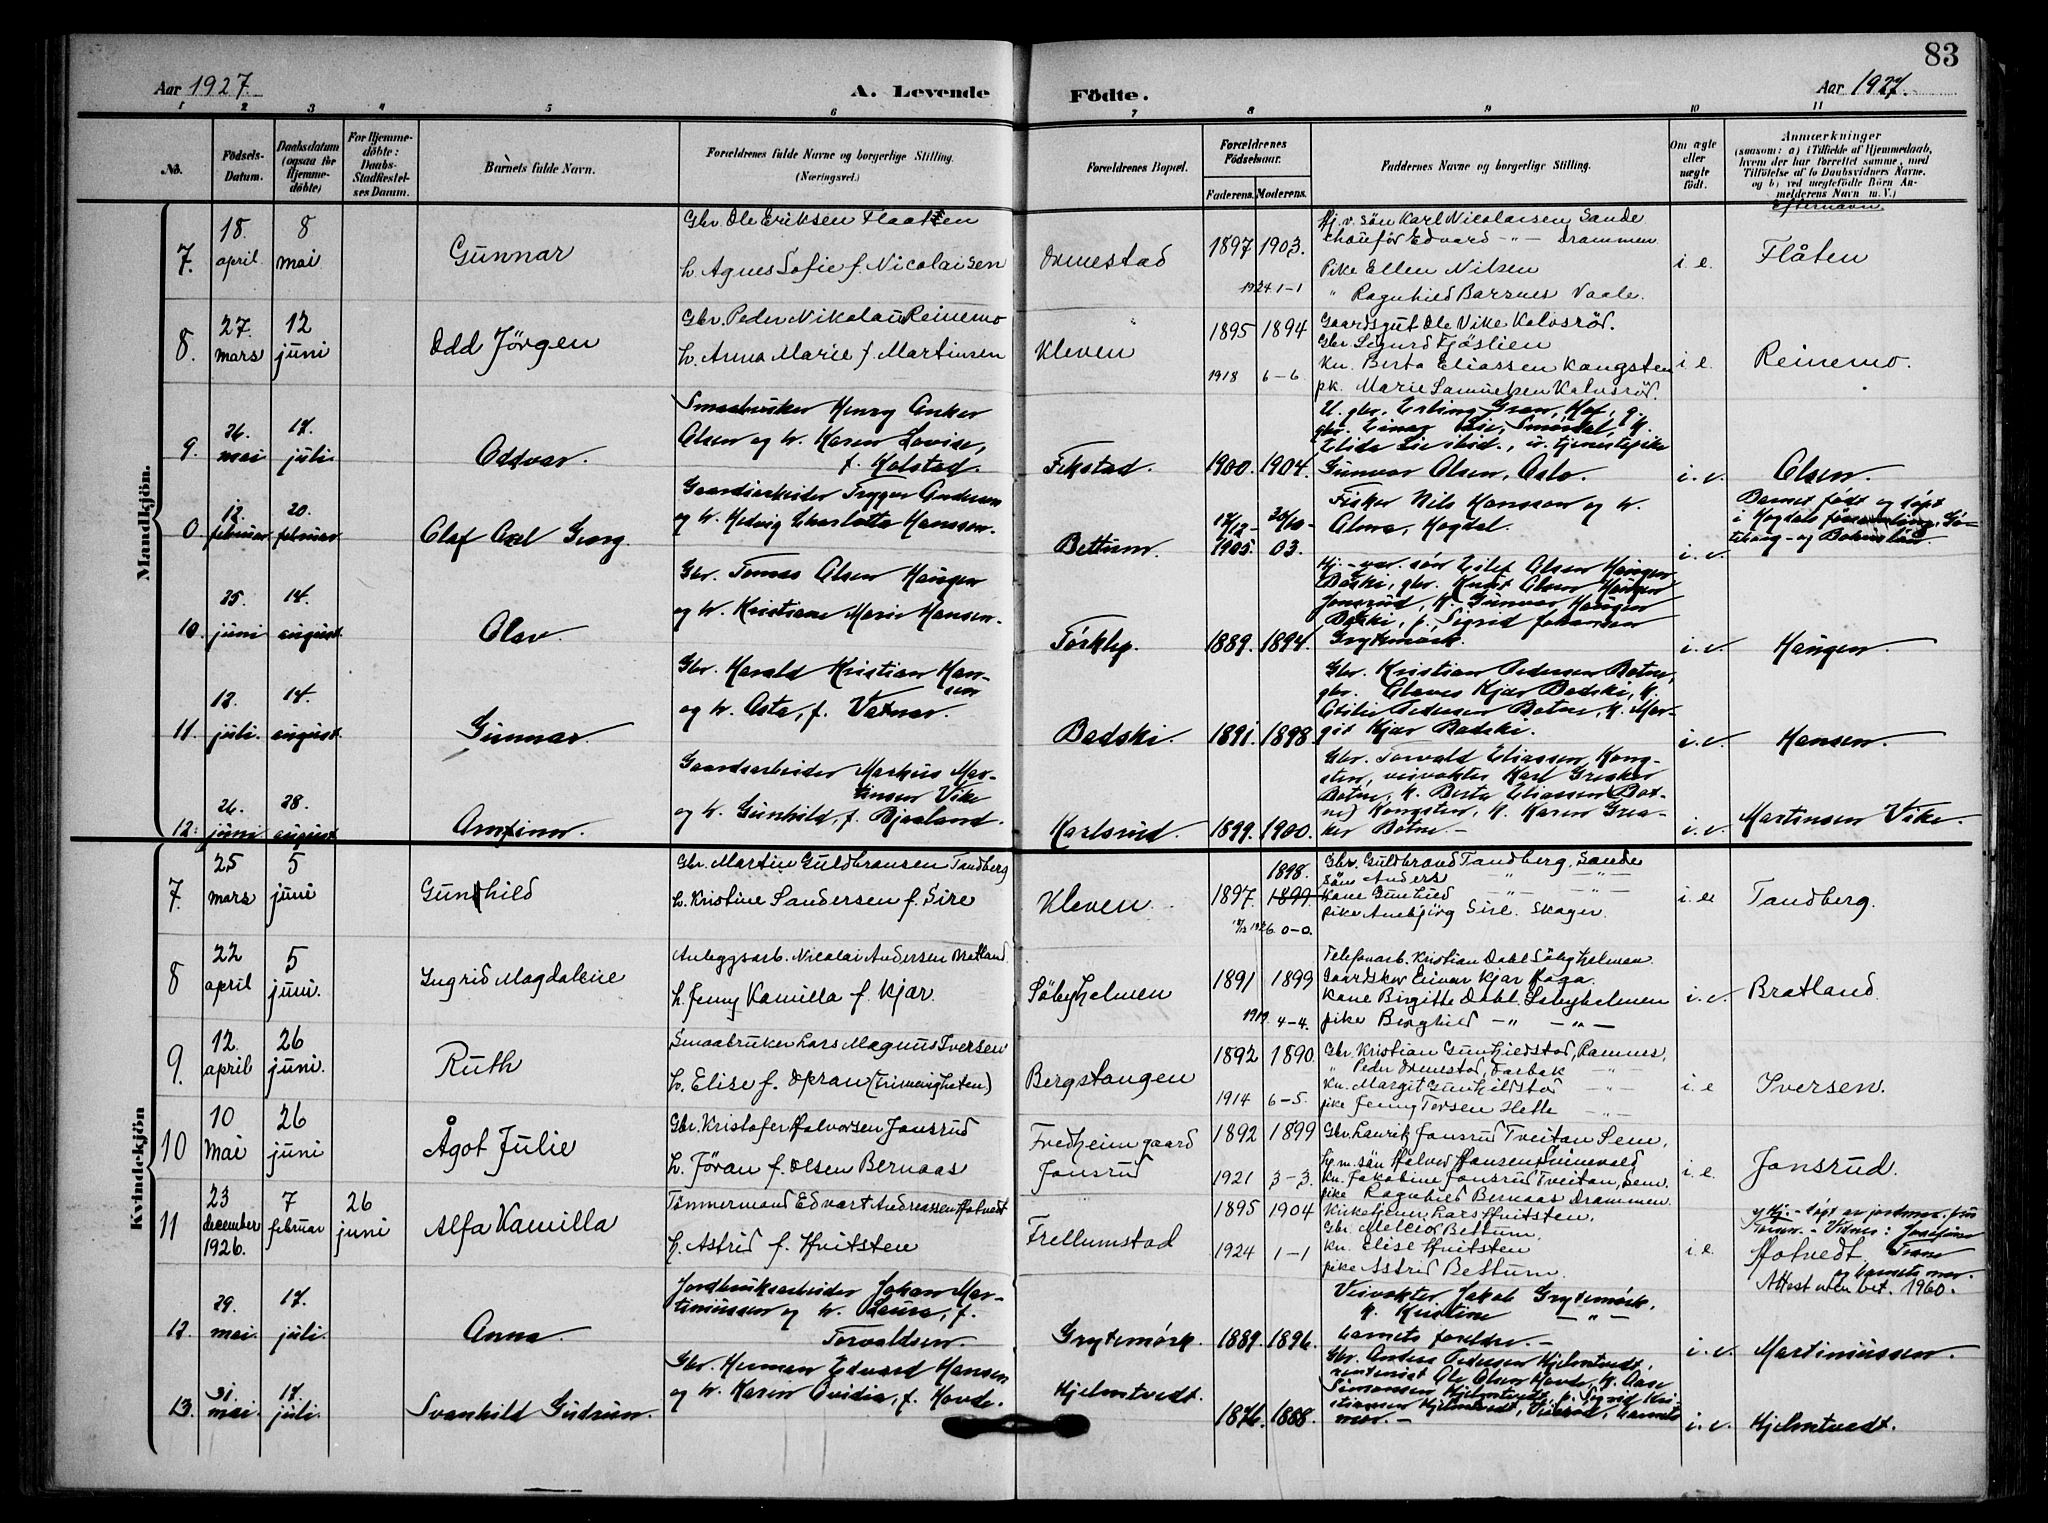 83
Aar 1927.
A. Levende
Födte.
Aar 1927.
1 2 3 4 5 6 7 8 9 10 11
No.
Födsels-
Datum.
Daabsdatum
(ogsaa for
Hjemme-
döbte)
For Hjemme-
döbte:
Daabs-
Stadfæstel-
ses Datum.
Barnets fulde Navn.
Forældrenes fulde Navne og borgerlige Stilling.
(Næringsvei.)
Forældrenes Bopæl.
Forældrenes
Födselsaar.
Faderens. Moderens.
Faddernes Navne og borgerlige Stilling.
Om ægte
eller
uægte
födt.
Anmærkninger
(saasom: a) i Tilfælde af Hjemmedaab,
hvem der har forrettet samme, med
Tilföielse af to Daabsvidners Navne.
og b) ved uægtefödte Börn An-
melderens Navn m.V.)
Efternavn
Mandkjön.
7. 18. april 8 mai Gunnar
Gbr. Ole Eriksen Flaaten
h. Agnes Sofie f. Nicolaisen
1897 1903.
1924. 1-1
Hj.v. sön Karl Nicolaisen Sande
Chauför Edvard -"- Drammen
Pike Ellen Nilsen
" Ragnhild Barsnes Vaale.
i e. Flåten
8. 27. mars 12 juni Odd Jörgen
Gbr. Peder Nikolau Reinemo
h. Anna Marie f. Martinsen
Kleven
1895 1894
1918 6-6
Gaardsgut Ole Vike Kolvsröd.
Gbr. Sigurd Fjöslien
Kn. Berta Eliassen Kangsten
pk. Marie Samuelsen Kolvsröd.
i e. Reinemo.
9. 26. mai 17. juli Oddvar.
Smaabruker Henry Anker
Olsen og h. Karen Lovise,
f. Kolstad.
Fikstad. 1900. 1904.
U. gbr. Erling Gran, Hof, g.
Gunvor Olsen, Oslo.
i. e. Olsen.
0 12. februar 20. februar Olaf Axel Georg.
Gaardsarbeider Trygve Andersen
og h. Hedvig Charlotte Hanssen.
Bettum. 17/12- 1905 28/10- 03.
Fisker Nils Hanssen og h.
Alma, Hogdal.
i. e.
Barnet født og døpt
10. 25. juni 14. august. Olav.
Gbr. Tomas Olsen Haugen
og h. Kristiane Marie Hansen.
Törklep. 1889. 1894.
Hj.-vær. sön Eilef Olsen Haugen
Badski, gbr. Knut Olsen Haugen
Jonsrud, k. Gunvor Haugen
Badski, p. Sigrid Johansen
Grytemörk.
i. e. Haugen.
11. 12. juli. 14. august. Gunnar.
Gbr. Harald Kristian Han-
sen
og h. Asta, f. Vatnar.
Badski. 1891. 1898.
Gbr. Kristian Pedersen Botne,
gbr. Claves Kjær Badski, k.
Cecilie Pedersen Botne, k. Mar-
git Kjær Badski.
i. e. Hansen.
12. 26. juni 28. august Arnfinn.
Gaardsarbeider Markus Mar-
tinsen Vike
og h. Gunhild, f. Bjaaland.
Karlsrud. 1899. 1900.
Gbr. Torvald Eliassen, Kong-
sten, veivokter Karl Greaker
Botne, k. Berta Eliassen (Bot-
ne) Kongsten, k. Karen Grea-
ker Botne. -
i. e. Martinsen Vike.
Kvindekjön
7. 25 mars 5 juni Gunhild
Gbr. Martin Guldbransen Tandberg
h. Kristine Sandersen f. Sire
Kleven. 1897 1898. 1899
Gbr. Guldbrand Tandberg, Sande
Sön Anders -"- -"-
Kone Gunhild -"- -"-
pike Anebjörg Sire. Skoger.
i. e. Tandberg.
8 22 april 5 juni. Ingrid Magdalene
Anleggsarb. Nicolai Andersen Bratland
h. Jenny Kamilla f. Kjær.
Söbyholmen 1891 1899
1919. 4-4.
Telefonarb. Kristian Dahl Söbyholmen
Gaardskar Einar Kjær Haga.
Kone Birgitte Dahl, Söbyholmen
pike Borghild -"- -"-
i. e. Bratland.
9. 12. april 26 juni. Ruth
Smaabruker Lars Magnus Iversen
h. Elise f. Opran (Frimenigheten)
Bergstangen 1892 1890.
1914 6-5.
Gbr. Kristian Gunhildstad, Ramnes,
Kn. Margit Gunhildstad -"-
pike Jenny Torsen Helle -"-
i. e Iversen.
10 10 Mai 26 juni Ågot Julie
Gbr. Kristofer Halvorsen Jonsrud
h. Jöran f. Olsen Bernaas
Fredheim gaard
Jonsrud
1892 1899
1921 3-3.
Gbr. Laurits Jonsrud Tveitan Sem,
Kn. Jakobine Jonsrud Tveitan, Sem.
pike Ragnhild Bernaas Drammen.
i. e. Jonsrud.
11 23 december 1926. 7 februar 26 juni Alfa Kamilla
Tömmermand Edvart Andreassen Hotvedt
h. Astrid f. Hvitsten
Frellumstad
1895 1904
1924 1-1
Kirketjener Lars Hvitsten.
Gbr. Melcior Bettum,
Kn. Elise Hvitsten
pike Astrid Bettum.
i. e.
Hotvedt.
og barnets mor.
Attest uten bet. 1960.
12. 29. mai. 17. juli. Anna.
Jordbruksarbeider Johan Mar-
tinussen og h. Laura, f.
Torvaldsen.
Grytemörk. 1889. 1896.
Veivokter Jakob Grytemörk.
k. Kristine -"-
barnets foreldre. -
i. e. Martiniussen.
13. 31. mai. 17. juli. Svanhild Gudrun.
Gbr. Herman Edvard Hansen
og h. Karen Ovidia, f. Hovde.
Hjelmtvedt. 1876. 1888.
Gbr. Anders Pedersen Hjelmtvedt,
rentenist Ole Olsen Hovde, k. Aase
Simonsen Hjelmtvedt, p. Sigrid Kri-
stiansen Hjelmtvedt, barnets
mor. -
i. e. Hjelmtvedt.